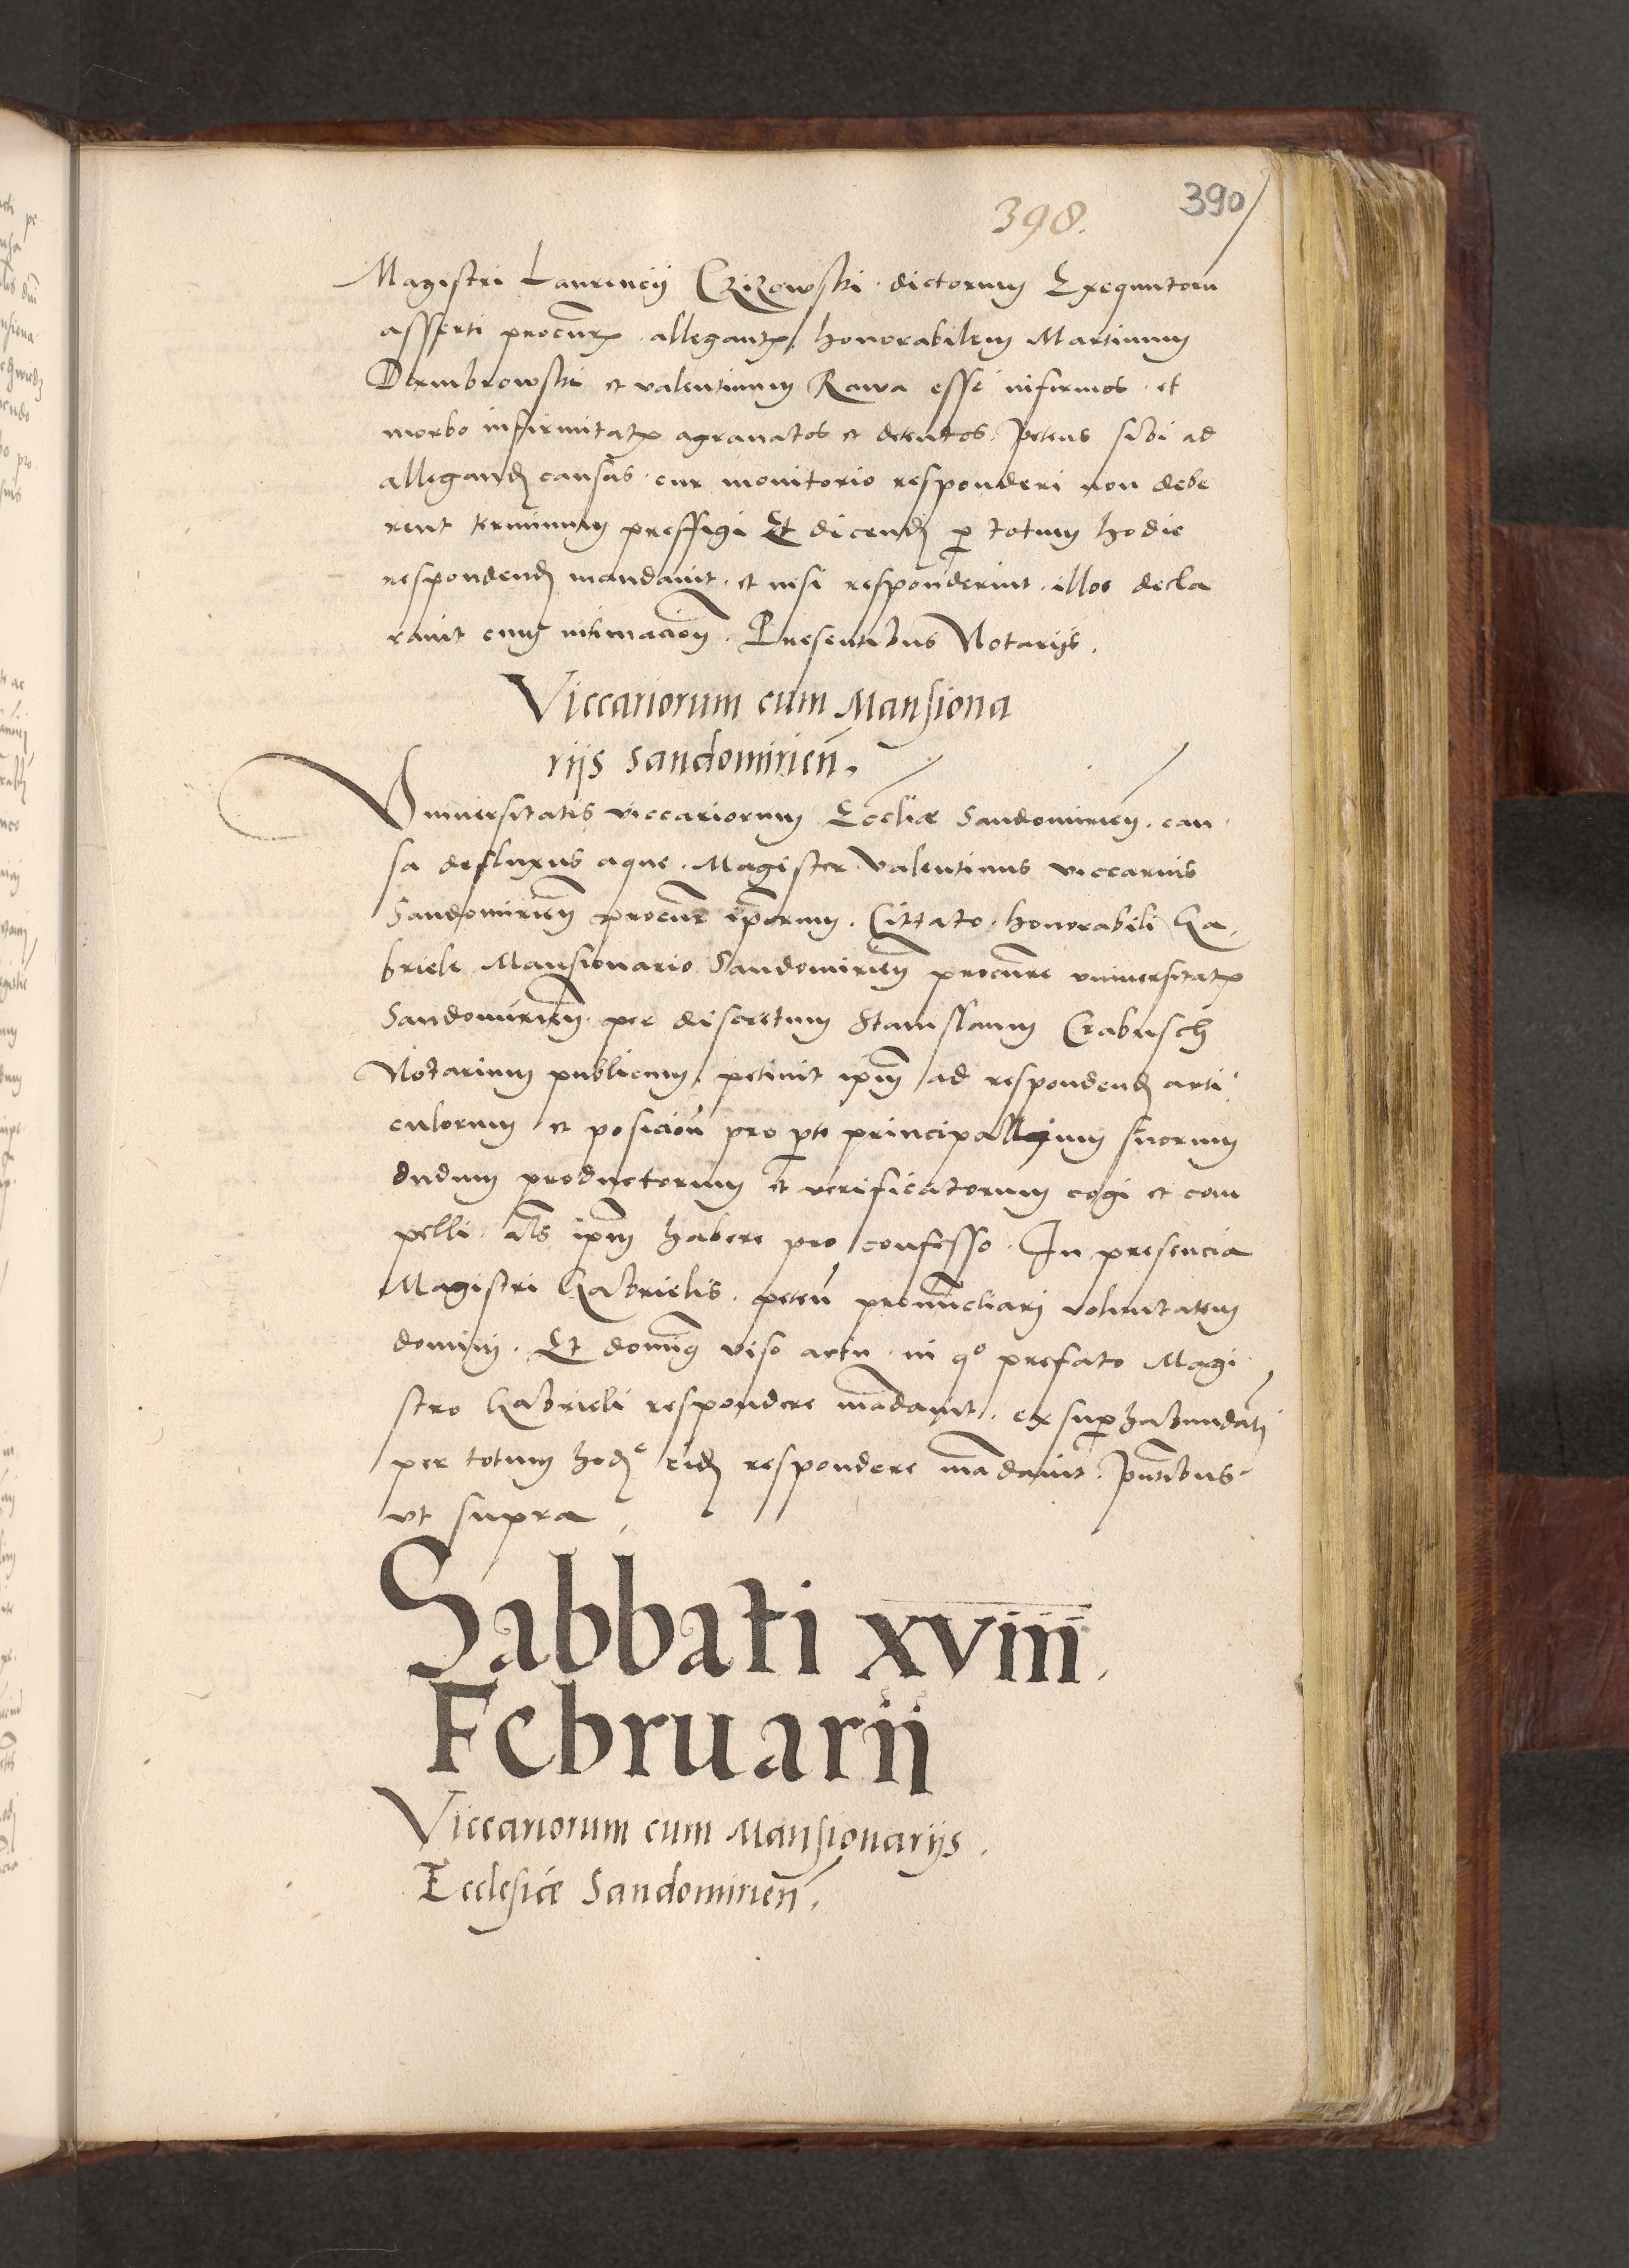 390
398.
Magistri Laurencij Czizowski dictorum Exequutorũ
asserti procur̃ allegant̃ honorabilem Martinum
Dembrowski et valentinum Rawa esse infirmos et
morbo infirmitat̃ agrauatos et detentos. Petens sibi ad
allegand̃ causas cur monitorio responderi non debe
rent terminum preffigi Et dicend̃ p totum hodie
respondend̃ mandauit. et nisi responderint. illos decla
rauit cum intimacioñ. Presentibus Notarijs.
Viccariorum cum Mansiona
rijs Sandomirieñ.
Vniuersitatis viccariorum Eccl̃iæ Sandomirieñ. cau
sa defluxus aque. Magister Valentinus viccarius
Sandomirieñ procur̃ ip̃orum. Cittato honorabili Ga
briele Mansionario Sandomirieñ procur̃e vniuersitat̃
Sandomirieñ. per discretum Stanislaum Crabusch
Notarium publicum. petiuit ip̃m ad respondend̃ arti
culorum et posicioñ pro p̃te principalium suorum
dudum productorum et verificatorum cogi et com
pelli. al̃s ip̃m habere pro confesso. In presencia
Magistri Gabrielis. peteñ pronũcciarj voluntatem
dominj. Et dominus viso actu. in q° prefato Magi
stro Gabrieli respondere mãdauit. ex sup̃habundãti
per totum hod̃e eid̃ respondere mãdauit. Pñtibus
vt supra.
Sabbati xviii.
Februarij
Viccariorum cum Mansionarijs.
Ecclesiæ Sandomirieñ.